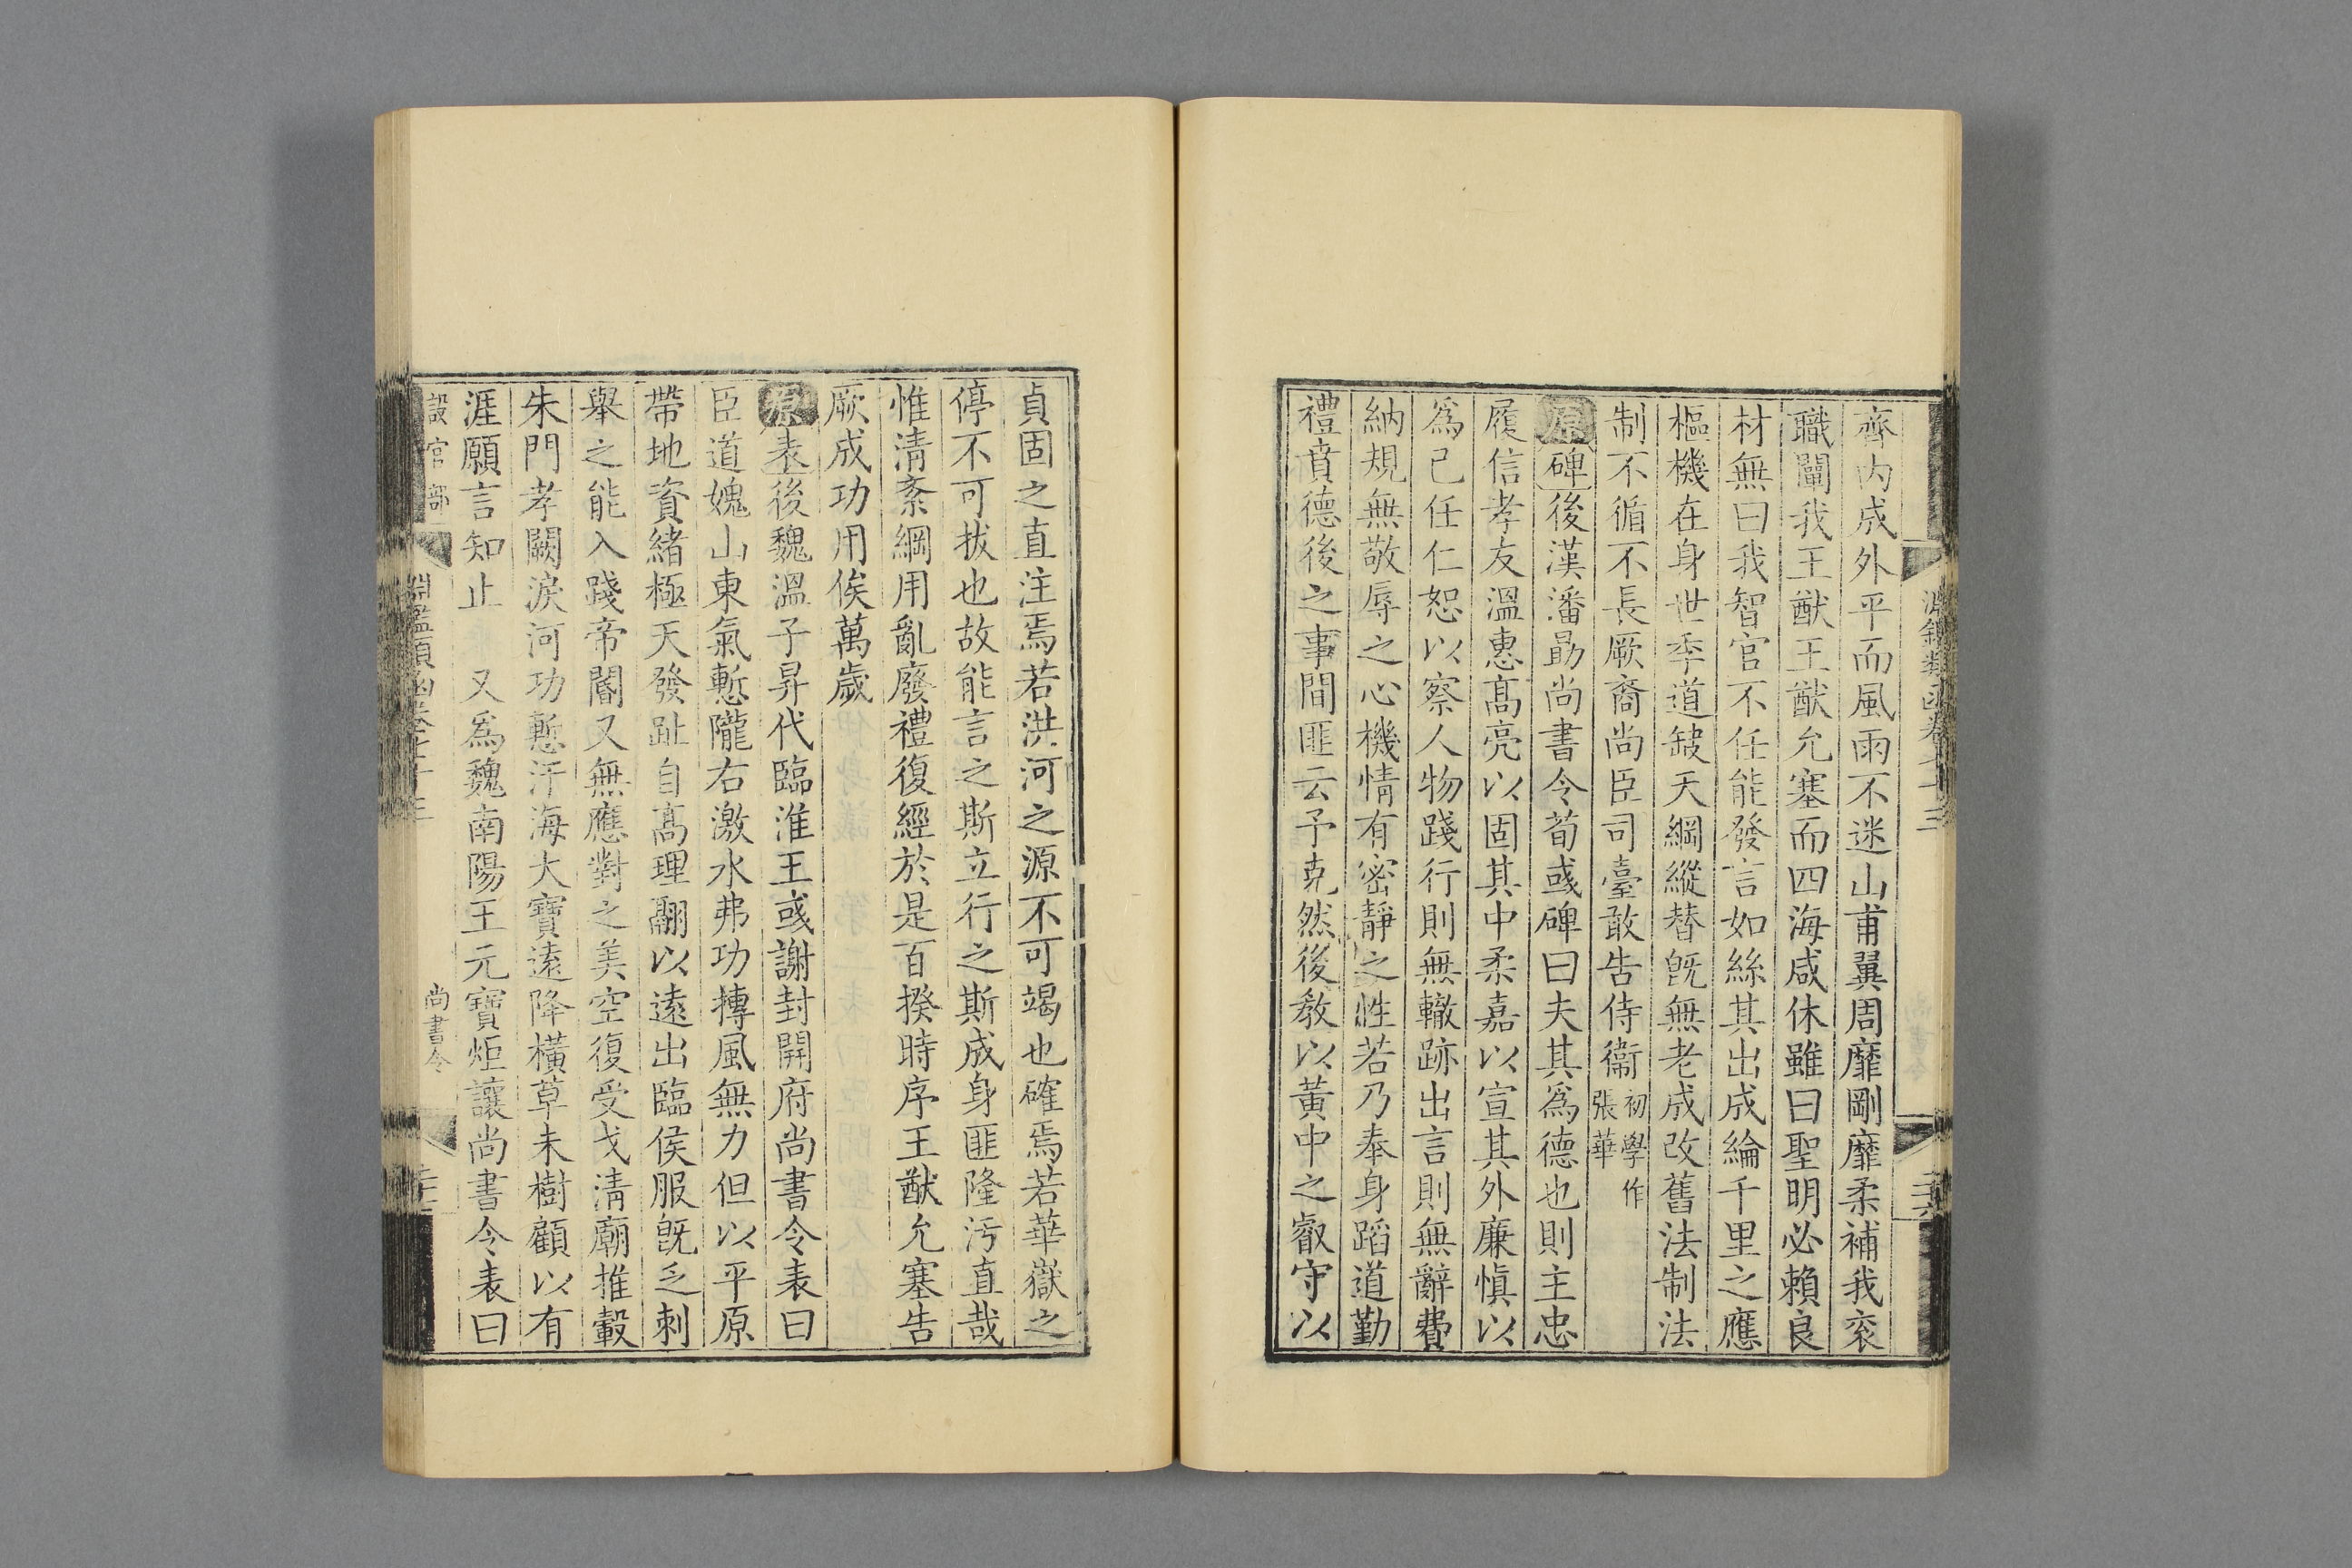 淵鑑類函卷七十三
二十六
齊內成外平而風雨不迷山甫翼周靡剛靡柔補我衮
職闡我王猷王猷允塞而四海咸休雖曰聖明必賴良
材無曰我智官不任能發言如絲其出成綸千里之應
樞機在身世季道缺天綱縱替旣無老成改舊法制法
制不循不長厥裔尚臣司臺敢告侍衞初學作張華
原碑後漢潘勗尚書令荀彧碑曰夫其爲德也則主忠
履信孝友溫惠高亮以固其中柔嘉以宣其外廉愼以
爲己任仁恕以察人物踐行則無轍跡出言則無辭費
納規無敬辱之心機情有密靜之性若乃奉身蹈道勤
禮賁德後之事間匪云予克然後敎以黃中之叡守以
貞固之直注焉若洪河之源不可竭也確焉若華嶽之
停不可拔也故能言之斯立行之斯成身匪隆汚直哉
惟清紊綱用亂廢禮復經於是百揆時序王猷允塞告
厥成功用俟萬歲
原表後魏溫子昇代臨淮王彧謝封開府尚書令表曰
臣道媿山東氣慙隴右激水弗功摶風無力但以平原
帶地資緒極天發趾自高理翮以遠出臨侯服旣乏刺
舉之能入踐帝閽又無應對之美空復受戈淸廟推轂
朱門孝闕淚河功慙汗海大寶遠降橫草未樹顧以有
涯願言知止 又爲魏南陽王元寶炬讓尚書令表曰
設官部
淵鑑類函卷七十三
尚書令